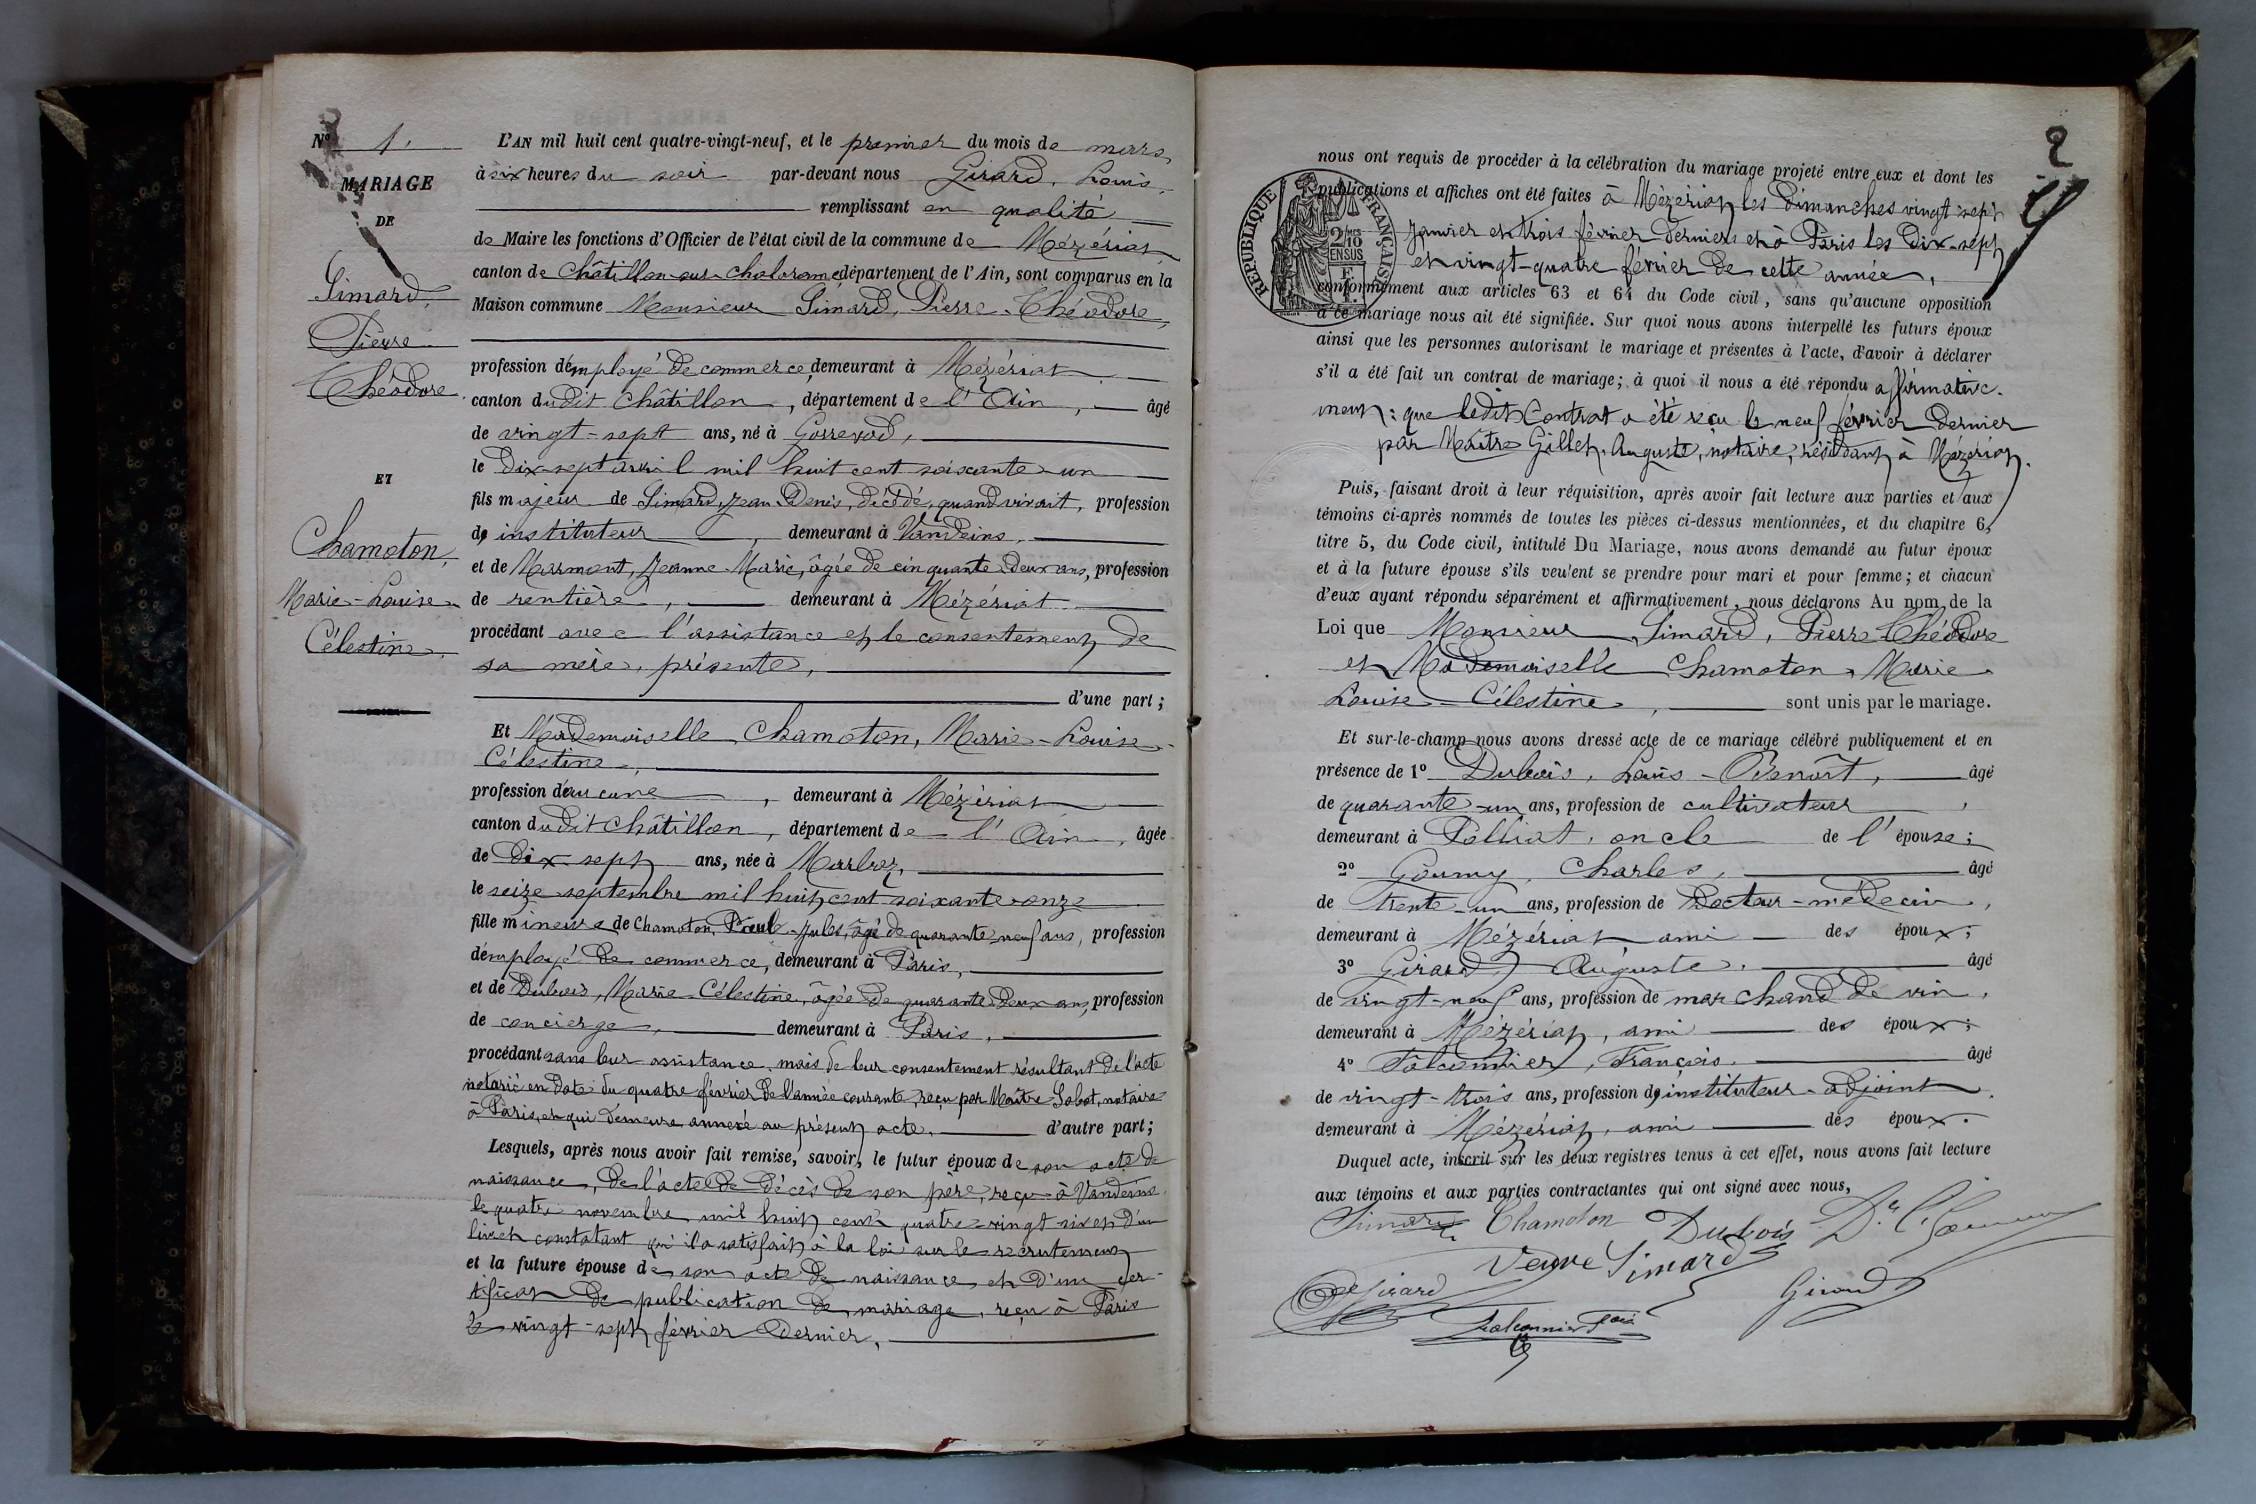 N° 1.
MARIAGE
DE
Simard,
Pierre
Théodore.
ET
Chamoton,
Marie-Louise
Célestine.
L'AN mil huit cent quatre-vingt-neuf, et le premier du mois de mars,
à six heures du soir par-devant nous Girard, Louis,
remplissant en qualité
de Maire les fonctions d'Officier de l'état civil de la commune de Mézériat
canton de Châtillon-sur-Chalaronne département de l'Ain, sont comparus en la
Maison commune Monsieur Simard, Pierre-Théodore,
profession d'employé de commerce, demeurant à Mézériat
canton dudit Châtillon, département de l'Ain, âgé
de vingt-sept ans, né à Gorrevod,
le dix-sept avril mil huit cent soixante-un
fils majeur de Simard, Jean-Denis, décédé, quand vivait, profession
d'instituteur, demeurant à Vandeins,
et de Marmont, Jeanne-Marie, âgée de cinquante-deux ans, profession
de rentière, demeurant à Mézériat
procédant avec l'assistance et le consentement de
sa mère, présente,
d'une part;
Et Mademoiselle Chamoton, Marie-Louise-
Célestine,
profession d'aucune, demeurant à Mézériat
canton dudit Châtillon, département de l'Ain, âgée
de dix-sept ans, née à Marboz,
le seize septembre mil huit cent soixante-onze
fille mineure de Chamoton, Paul-Jules, âgé de quarante-neuf ans, profession
d'employé de commerce, demeurant à Paris,
et de Dubois, Marie-Célestine, âgée de quarante-deux ans, profession
de concierge, demeurant à Paris,
procédant sans leur assistance, mais de leur consentement résultant de l'acte
notarié en date du quatre février de l'année courante, reçu par Maître Sabot, notaire
à Paris, et qui demeure annexé au présent acte, d'autre part;
Lesquels, après nous avoir fait remise, savoir, le futur époux de son acte de
naissance, de l'acte de décès de son père, reçu à Vandeins
le quatre novembre mil huit cent quatre-vingt-six et d'un
livret constatant qu'il a satisfait à la loi sur le recrutement
et la future épouse de son acte de naissance et d'un cer-
tificat de publication de mariage, reçu à Paris
le vingt-sept février dernier,
2
nous ont requis de procéder à la célébration du mariage projeté entre eux et dont les
publications et affiches ont été faites à Mézériat les dimanches vingt-sept
janvier et trois février derniers et à Paris les dix-sept
et vingt-quatre février de cette année,
conformément aux articles 63 et 64 du Code civil, sans qu'aucune opposition
à ce mariage nous ait été signifiée. Sur quoi nous avons interpellé les futurs époux
ainsi que les personnes autorisant le mariage et présentes à l'acte, d'avoir à déclarer
s'il a été fait un contrat de mariage; à quoi il nous a été répondu affirmative-
ment: que ledit Contrat a été reçu le neuf février dernier
par Maître Gillet, Auguste, notaire, résidant à Mézériat.
RÉPUBLIQUE FRANÇAISE
2/10
EN SUS
Puis, faisant droit à leur réquisition, après avoir fait lecture aux parties et aux
témoins ci-après nommés de toutes les pièces ci-dessus mentionnées, et du chapitre 6,
titre 5, du Code civil, intitulé Du Mariage, nous avons demandé au futur époux
et à la future épouse s'ils veulent se prendre pour mari et pour femme; et chacun
d'eux ayant répondu séparément et affirmativement, nous déclarons Au nom de la
Loi que Monsieur Simard, Pierre-Théodore
et Mademoiselle Chamoton, Marie
Louise-Célestine, sont unis par le mariage.
Et sur-le-champ nous avons dressé acte de ce mariage célébré publiquement et en
présence de 1° Dubois, Louis-Benoît, âgé
de quarante-un ans, profession de cultivateur,
demeurant à Polliat, oncle de l'épouse;
2° Goumy, Charles, âgé
de trente-un ans, profession de Docteur-médecin,
demeurant à Mézériat, ami des époux;
3° Girard, Auguste, âgé
de vingt-neuf ans, profession de marchand de vin,
demeurant à Mézériat, ami des époux;
4° Falconnier, François, âgé
de vingt-trois ans, profession d'instituteur-adjoint,
demeurant à Mézériat, ami des époux.
Duquel acte, inscrit sur les deux registres tenus à cet effet, nous avons fait lecture
aux témoins et aux parties contractantes qui ont signé avec nous,
Simard Chamoton Dubois Dr C. Goumy
Veuve Simard
Girard Girard
Falconnier Fois